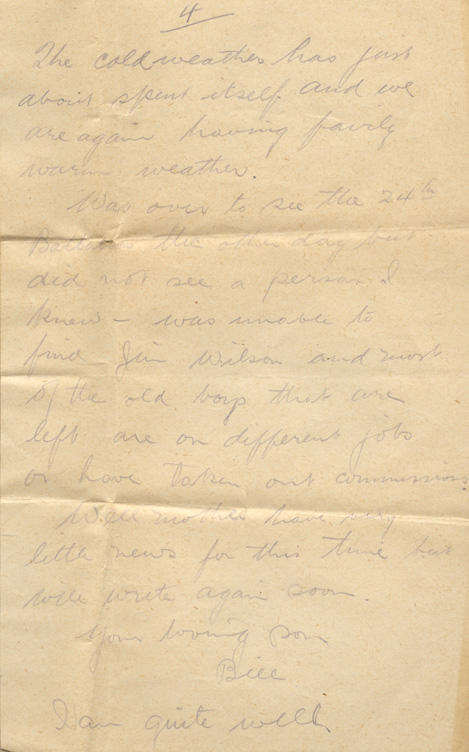 4
The cold weather has just
about spent itself and we
are again having fairly
warm weather.
Was over to see the 24th
the other day but
did not see a person I
knew – was unable to
find Jim Wilson and most
of the old boys that are
left are on different jobs
or have taken out commissions
Well mother have very
little news for this time but
will write again soon.
Your loving son
Bill
I am quite well.